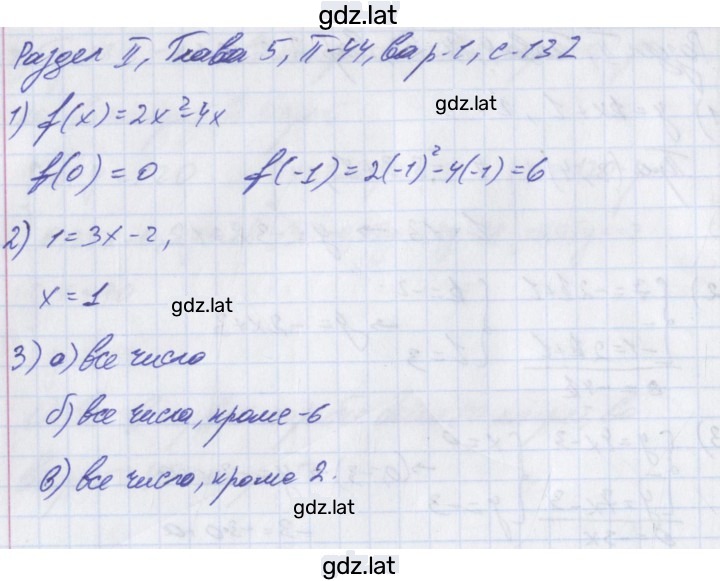 gdz.lat
Раздел II, Глава 5, П-44, вар-1, с-132
1) f(x)=2x²-4x
gdz.lat
f(0)=0 f(-1)=2(-1)²-4(-1)=6
2) 1=3x-2,
x=1
gdz.lat
3) а) все числа
б) все числа, кроме -6
в) все числа, кроме 2.
gdz.lat
gdz.lat